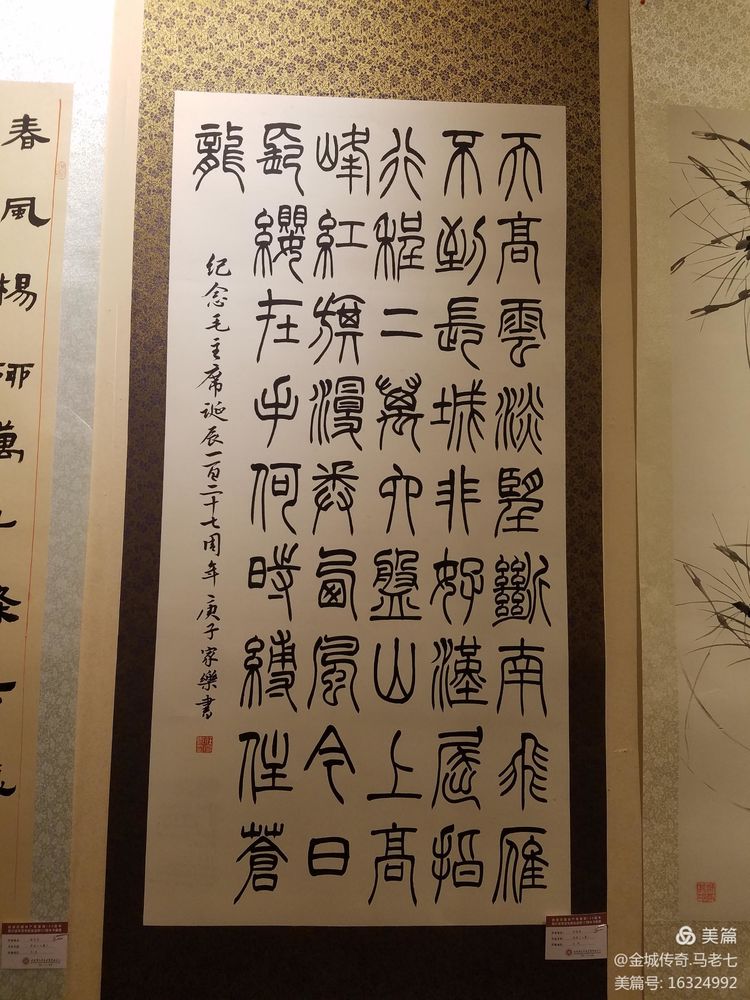 天高雲淡望斷南飛雁
不到長城非好漢屈指
行程二萬六盤山上高
峰紅旗漫卷西風今日
長纓在手何時縛住蒼
龍
纪念毛主席诞辰一百二十七周年 庚子家樂書
春風楊柳萬千條
美篇
@金城传奇.马老七
美篇号: 16324992